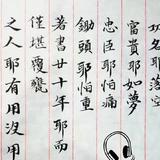 功名耶落空
富貴耶如夢
忠臣耶怕痛
鋤頭耶怕重
著書廿十年耶而
僅堪覆甕
之人耶有用沒用